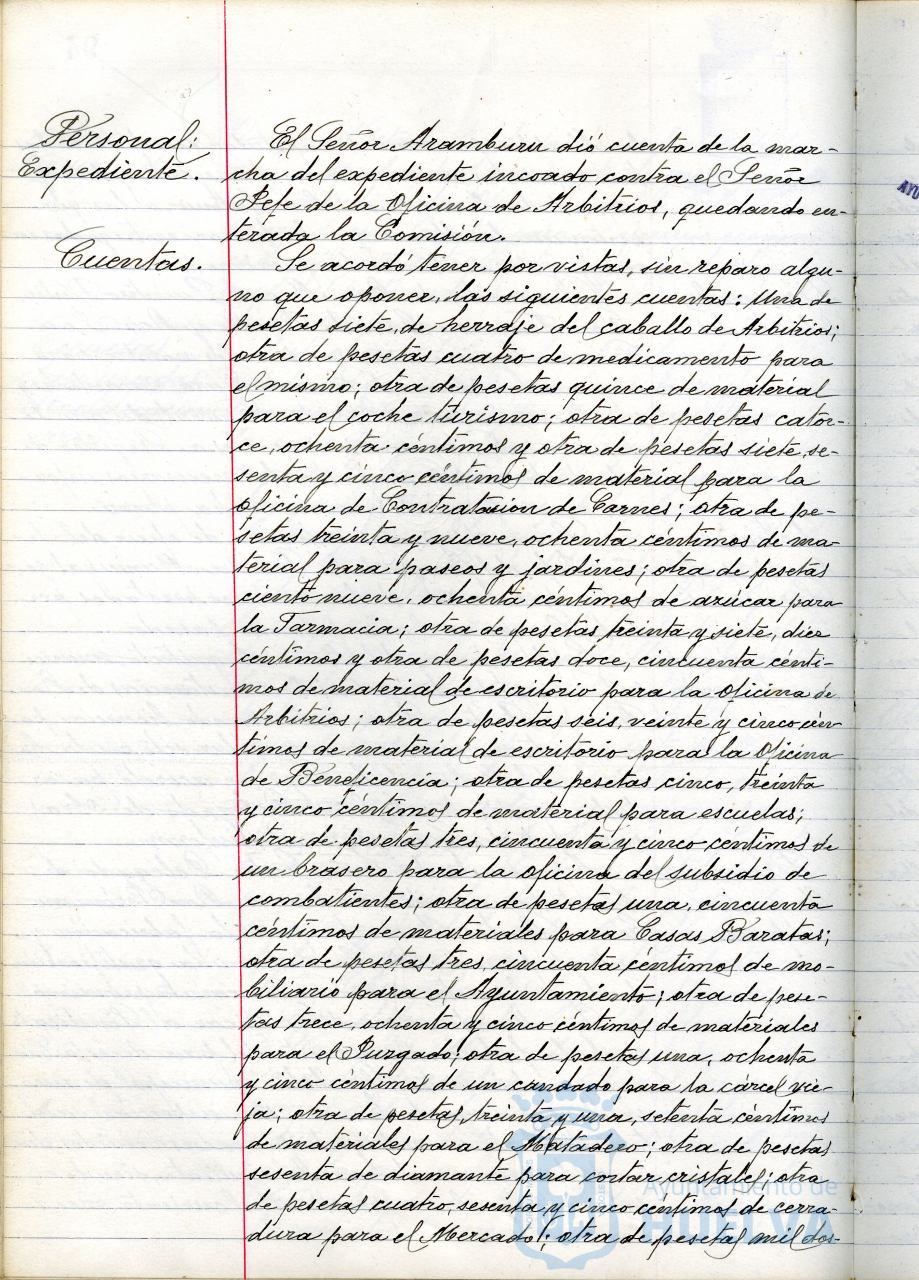 Personal:
Expediente.
El Señor Aramburu dió cuenta de la mar-
cha del expediente incoado contra el Señor
Jefe de la Oficina de Arbitrios, quedando en-
terada la Comisión.
Cuentas.
Se acordó tener por vistas, sin reparo algu-
no que oponer, las siguientes cuentas: Una de
pesetas siete, de herraje del caballo de Arbitrios;
otra de pesetas cuatro de medicamento para
el mismo; otra de pesetas quince de material
para el coche turismo; otra de pesetas cator-
ce, ochenta céntimos y otra de pesetas siete, se-
senta y cinco céntimos de material para la
oficina de Contratasión de Carnes; otra de pe-
setas treinta y nueve, ochenta céntimos de ma-
terial para paseos y jardines; otra de pesetas
ciento nueve, ochenta céntimos de azúcar para
la Farmacia; otra de pesetas treinta y siete, diez
céntimos y otra de pesetas doce, cincuenta cénti-
mos de material de escritorio para la oficina de
Arbitrios; otra de pesetas seis, veinte y cinco cén-
timos de material de escritorio para la Oficina
de Beneficencia; otra de pesetas cinco, treinta
y cinco céntimos de material para escuelas;
otra de pesetas tres, cincuenta y cinco céntimos de
un brasero para la oficina del subsidio de
combatientes; otra de pesetas una, cincuenta
céntimos de materiales para Casas Baratas;
otra de pesetas tres, cincuenta céntimos de mo-
biliario para el Ayuntamiento; otra de pese-
tas trece, ochenta y cinco céntimos de materiales
para el Juzgado; otra de pesetas una, ochenta
y cinco céntimos de un candado para la cárcel vie-
ja; otra de pesetas, treinta y una, setenta céntimos
de materiales para el Matadero; otra de pesetas
sesenta de diamante para cortar cristales; otra
de pesetas cuatro, sesenta y cinco céntimos de cerra-
dura para el Mercado; otra de pesetas mil dos-
Ayuntamiento de
HUELVA
AYU